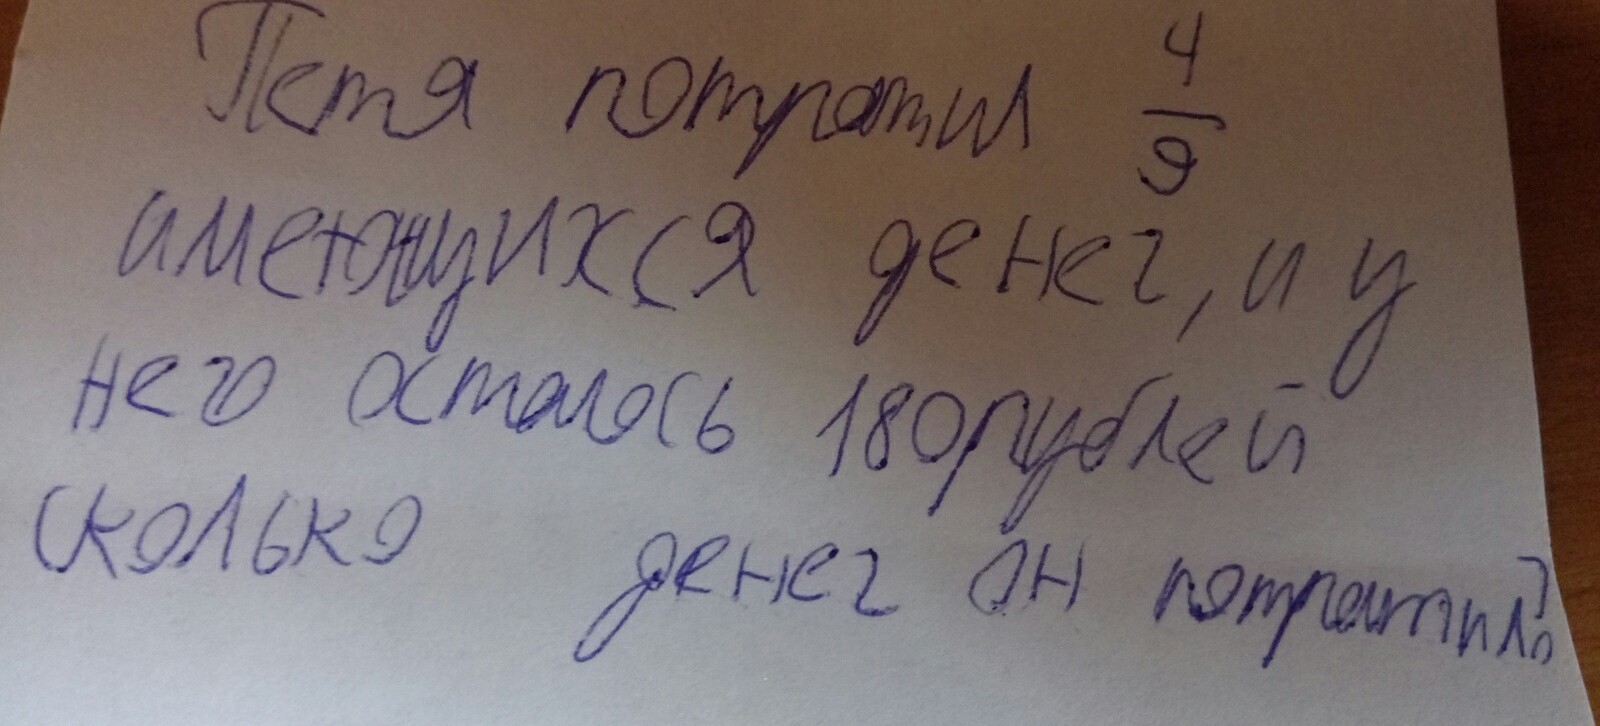 Петя потратил 4/9
имеющихся денег, и у
него осталось 180 рублей
сколько денег он потратил?